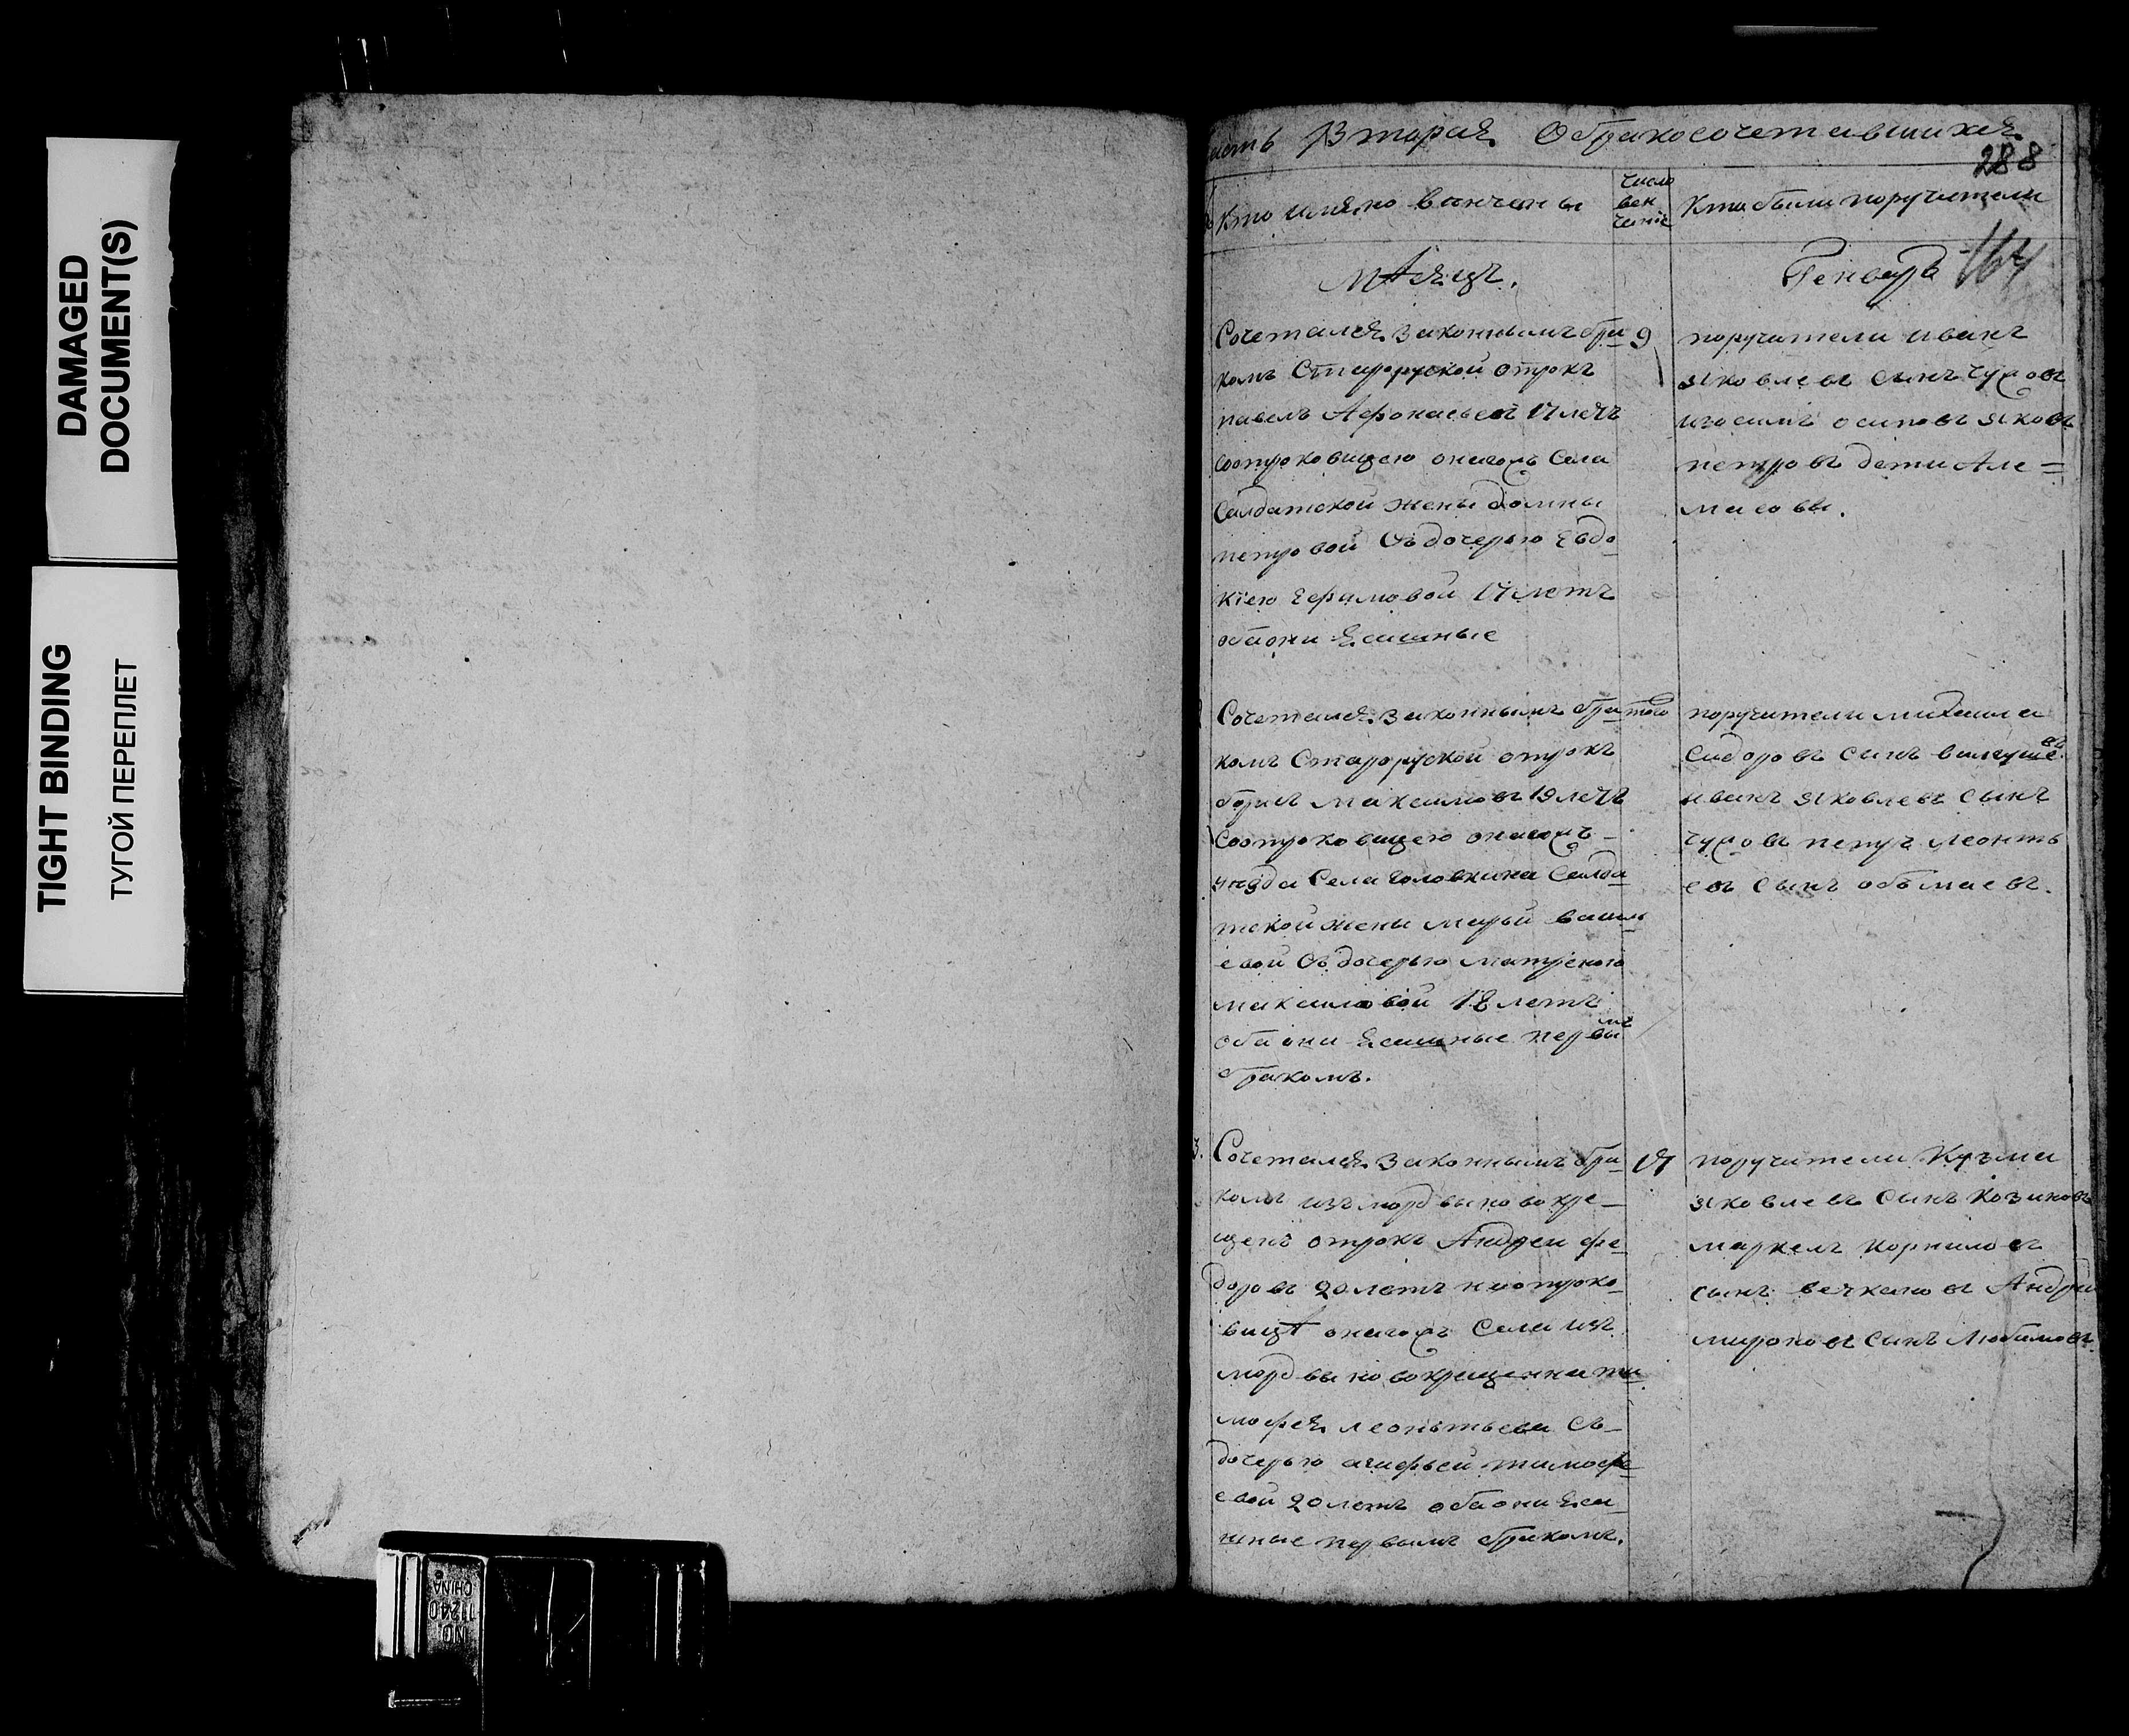 DAMAGED
DOCUMENT(S)
TIGHT BINDING
ТУГОЙ ПЕРЕПЛЕТ
NO.
11240
CHINA
асть Вторая О бракосочетавшихся
288
Кто имяно венчаны
число
вен
чания
Кто были поручители
мѣсяцъ.
Генварь
164
Сочетался законнымъ бра
комъ Старорускои отрокъ
павелъ Афонасьевъ 17 летъ
соотроковицею онагожъ села
Салдатской жены домны
петровой Съ дочерью Евдо
кіею Ефимовой 17 летъ
оба они ясашные
9
поручители иванъ
яковлевъ сынъ Чудовъ
изосимъ осиповъ яковъ
петровъ дети Але=
масовы.
Сочетался законнымъ бра
комъ Старорускои отрокъ
борисъ максимовъ 19 летъ
соотроковицею онагожъ
уезда Села головкина Салда
тской жены марьи василь
евой Съ дочерью матреною
максимовой 18 летъ
оба они ясашные первымъ
бракомъ.
того
поручители михаила
сидоровъ сынъ
иванъ яковлевъ сынъ
Чудовъ петръ леонть
евъ сынъ
3.
Сочетался законнымъ бра
комъ изъ мордвы новокре
щенъ отрокъ Андреи фе
доровъ 20 летъ на отроко
вицѣ онагожъ села изъ
мордвы новокрещенна ти
мофея леонтьева съ
дочерью агафьей тимофе
евой 20 летъ оба они яса
шные первымъ бракомъ.
17
поручители Кузма
яковлевъ сынъ Козиновъ
маркелъ корниловъ
сынъ вечкановъ Андреи
мироновъ сынъ Любимовъ.